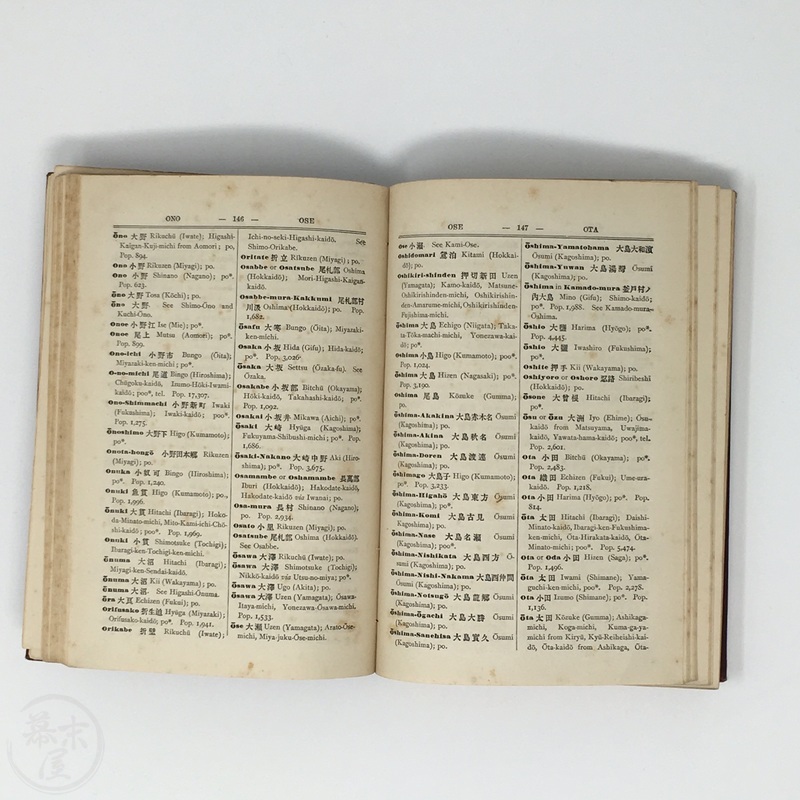 ONO — 146 — OSE
Ōno 大野 Rikuchū (Iwate); Higashi-
Kaigan-Kuji-michi from Aomori; po,
Pop. 894.
Ono 小野 Rikuzen (Miyagi); po.
Ono 小野 Shinano (Nagano); po*.
Pop. 623.
Ōno 大野 Tosa (Kōchi); po.
Ōno 大野 See Shimo-Ōno and
Kuchi-Ōno.
Onoe 小野江 Ise (Mie); po*.
Onoe 尾上 Mutsu (Aomori); po*.
Pop. 899.
Ono-ichi 小野市 Bungo (Ōita);
Miyazaki-ken-michi; po*.
O-no-michi 尾道 Bingo (Hiroshima);
Chūgoku-kaidō, Izumo-Hōki-Iwami-
kaidō; poo*, tel. Pop. 17,307.
Ono-Shimmachi 小野新町 Iwaki
(Fukushima); Iwaki-kaidō; poo*.
Pop. 1,275.
Ōnoshimo 大野下 Higo (Kumamoto);
po*.
Onota-hongō 小野田本郷 Rikuzen
(Miyagi); po.
Onuka 小奴可 Bingo (Hiroshima);
po*. Pop. 1,240.
Onuki 魚貫 Higo (Kumamoto); po.,
Pop. 1,996.
Ōnuki 大貫 Hitachi (Ibaragi); Hoko-
da-Minato-michi, Mito-Kami-ichi-Chō-
shi-kaidō; poo*. Pop. 1,969.
Onuki 小貫 Shimotsuke (Tochigi);
Ibaragi-ken-Tochigi-ken-michi.
Ōnuma 大沼 Hitachi (Ibaragi);
Miyagi-ken-Sendai-kaidō.
Ōnuma 大沼 Kii (Wakayama); po.
Ōnuma 大沼. See Higashi-Ōnuma.
Ōra 大瓦 Echizen (Fukui); po.
Orifusako 折生迫 Hyūga (Miyazaki);
Orifusako-kaidō; po*. Pop. 1,941.
Orikabe 折壁 Rikuchū (Iwate);
Ichi-no-seki-Higashi-kaidō, See
Shimo-Orikabe.
Oritate 折立 Rikuzen (Miyagi); po.
Osabbe or Osatsube 尾札部 Oshima
(Hokkaidō); Mori-Higashi-Kaigan-
kaidō.
Osabbe-mura-Kakkumi 尾札部村
川汲 Oshima (Hokkaidō); po. Pop.
1,682.
Ōsafu 大寒 Bungo (Ōita); Miyazaki-
ken-michi.
Osaka 小坂 Hida (Gifu); Hida-kaidō;
po*. Pop. 3,026.
Ōsaka 大坂 Settsu (Ōzaka-fu). See
Ōzaka.
Osakabe 小坂部 Bitchū (Okayama);
Hōki-kaidō, Takahashi-kaidō; po*.
Pop. 1,092.
Osakai 小坂井 Mikawa (Aichi); po*.
Ōsaki 大崎 Hyūga (Kagoshima);
Fukuyama-Shibushi-michi; po*. Pop.
1,686.
Ōsaki-Nakano 大崎中野 Aki (Hiro-
shima); po*. Pop. 3,675.
Osamambe or Oshamambe 長萬部
Iburi (Hokkaidō); Hakodate-kaidō,
Hakodate-kaidō viz Iwanai; po*.
Osa-mura 長村 Shinano (Nagano);
po. Pop. 2,934.
Osato 小里 Rikuzen (Miyagi); po.
Osatsube 尾札部 Oshima (Hokkaidō).
See Osabbe.
Ōsawa 大澤 Rikuchū (Iwate); po.
Ōsawa 大澤 Shimotsuke (Tochigi);
Nikkō-kaidō viz Utsu-no-miya; po*.
Ōsawa 大澤 Ugo (Akita); po.
Ōsawa 大澤 Uzen (Yamagata), Ōsawa-
Itaya-michi, Yonezawa-Ōsawa-michi;
Pop. 1,533.
Ōse 大瀬 Uzen (Yamagata); Arato-Ōse-
michi, Miya-juku-Ōse-michi.
OSE — 147 — OTA
Ose 小瀬 See Kami-Ose.
Oshidomari 鴛泊 Kitami (Hokkai-
dō); po.
Oshikiri-shinden 押切新田 Uzen
(Yamagata); Kamo-kaidō, Matsune-
Oshikirishinden-michi, Oshikirishin-
den-Amarume-michi, Oshikirishinden-
Fujishima-michi.
Ōshima 大島 Echigo (Niigata); Taka-
ta-Tōka-machi-michi, Yonezawa-kai-
dō; po*.
Oshima 小島 Higo (Kumamoto); poo*.
Pop. 1,024.
Ōshima 大島 Hizen (Nagasaki); po*.
Pop. 3,190.
Oshima 尾島 Kōzuke (Gumma);
po.
Ōshima-Akakina 大島赤木名 Ōsumi
(Kagoshima); po.
Ōshima-Akina 大島秋名 Ōsumi
(Kagoshima); po.
Ōshima-Doren 大島渡連 Ōsumi
(Kagoshima); po.
Ōshimago 大島子 Higo (Kumamoto);
po*. Pop. 3,233.
Ōshima-Higahō 大島東方 Ōsumi
(Kagoshima); po.
Ōshima-Komi 大島古見 Ōsumi
(Kagoshima); po.
Ōshima-Nase 大島名瀬 Ōsumi
(Kagoshima); poo*.
Ōshima-Nishikata 大島西方 Ō-
sumi (Kagoshima); po.
Ōshima-Nishi-Nakama 大島西仲間
Ōsumi (Kagoshima); po.
Ōshima-Notsugō 大島龍郷 Ōsumi
(Kagoshima); po.
Ōshima-Ōgachi 大島大勝 Ōsumi
(Kagoshima); po.
Ōshima-Sanehisa 大島實久 Ōsumi
(Kagoshima); po.
Ōshima-Yamatohama 大島大和濱
Ōsumi (Kagoshima); po.
Ōshima-Yuwan 大島湯灣 Ōsumi
(Kagoshima); po.
Ōshima in Kamado-mura 釜戸村ノ
内大島 Mino (Gifu); Shimo-kaidō;
po*. Pop. 1,988. See Kamado-mura-
Ōshima.
Ōshio 大鹽 Harima (Hyōgo); po*.
Pop. 4,445.
Ōshio 大鹽 Iwashiro (Fukushima);
po*.
Oshite 押手 Kii (Wakayama); po.
Oshiyoro or Oshoro 忍路 Shiribeshi
(Hokkaidō); po.
Ōsone 大曾根 Hitachi (Ibaragi);
po*.
Ōsu or Ōzu 大洲 Iyo (Ehime); Ōsu-
kaidō from Matsuyama, Uwajima-
kaidō, Yawata-hama-kaidō; poo*, tel.
Pop. 2,601.
Ota 小田 Bitchū (Okayama); po*.
Pop. 2,483.
Ota 織田 Echizen (Fukui); Ume-ura-
kaidō. Pop. 1,218.
Ota 小田 Harima (Hyōgo); po*. Pop.
814.
Ōta 太田 Hitachi (Ibaragi); Daishi-
Minato-kaidō, Ibaragi-ken-Fukushima-
ken-michi, Ōta-Hirakata-kaidō, Ōta-
Minato-michi; poo*. Pop. 5,474.
Ota or Oda 小田 Hisen (Saga); po*.
Pop. 1,496.
Ōta 太田 Iwami (Shimane); Yama-
guchi-ken-michi; po*. Pop. 2,278.
Ota 小田 Izumo (Shimane); po*. Pop.
1,136.
Ōta 太田 Kōzuke (Gumma); Ashikaga-
michi, Koga-michi, Kuma-ga-ya-
michi from Kiryū, Kyū-Reiheishi-kai-
dō, Ōta-kaidō from Ashikaga, Ōta-
幕末屋